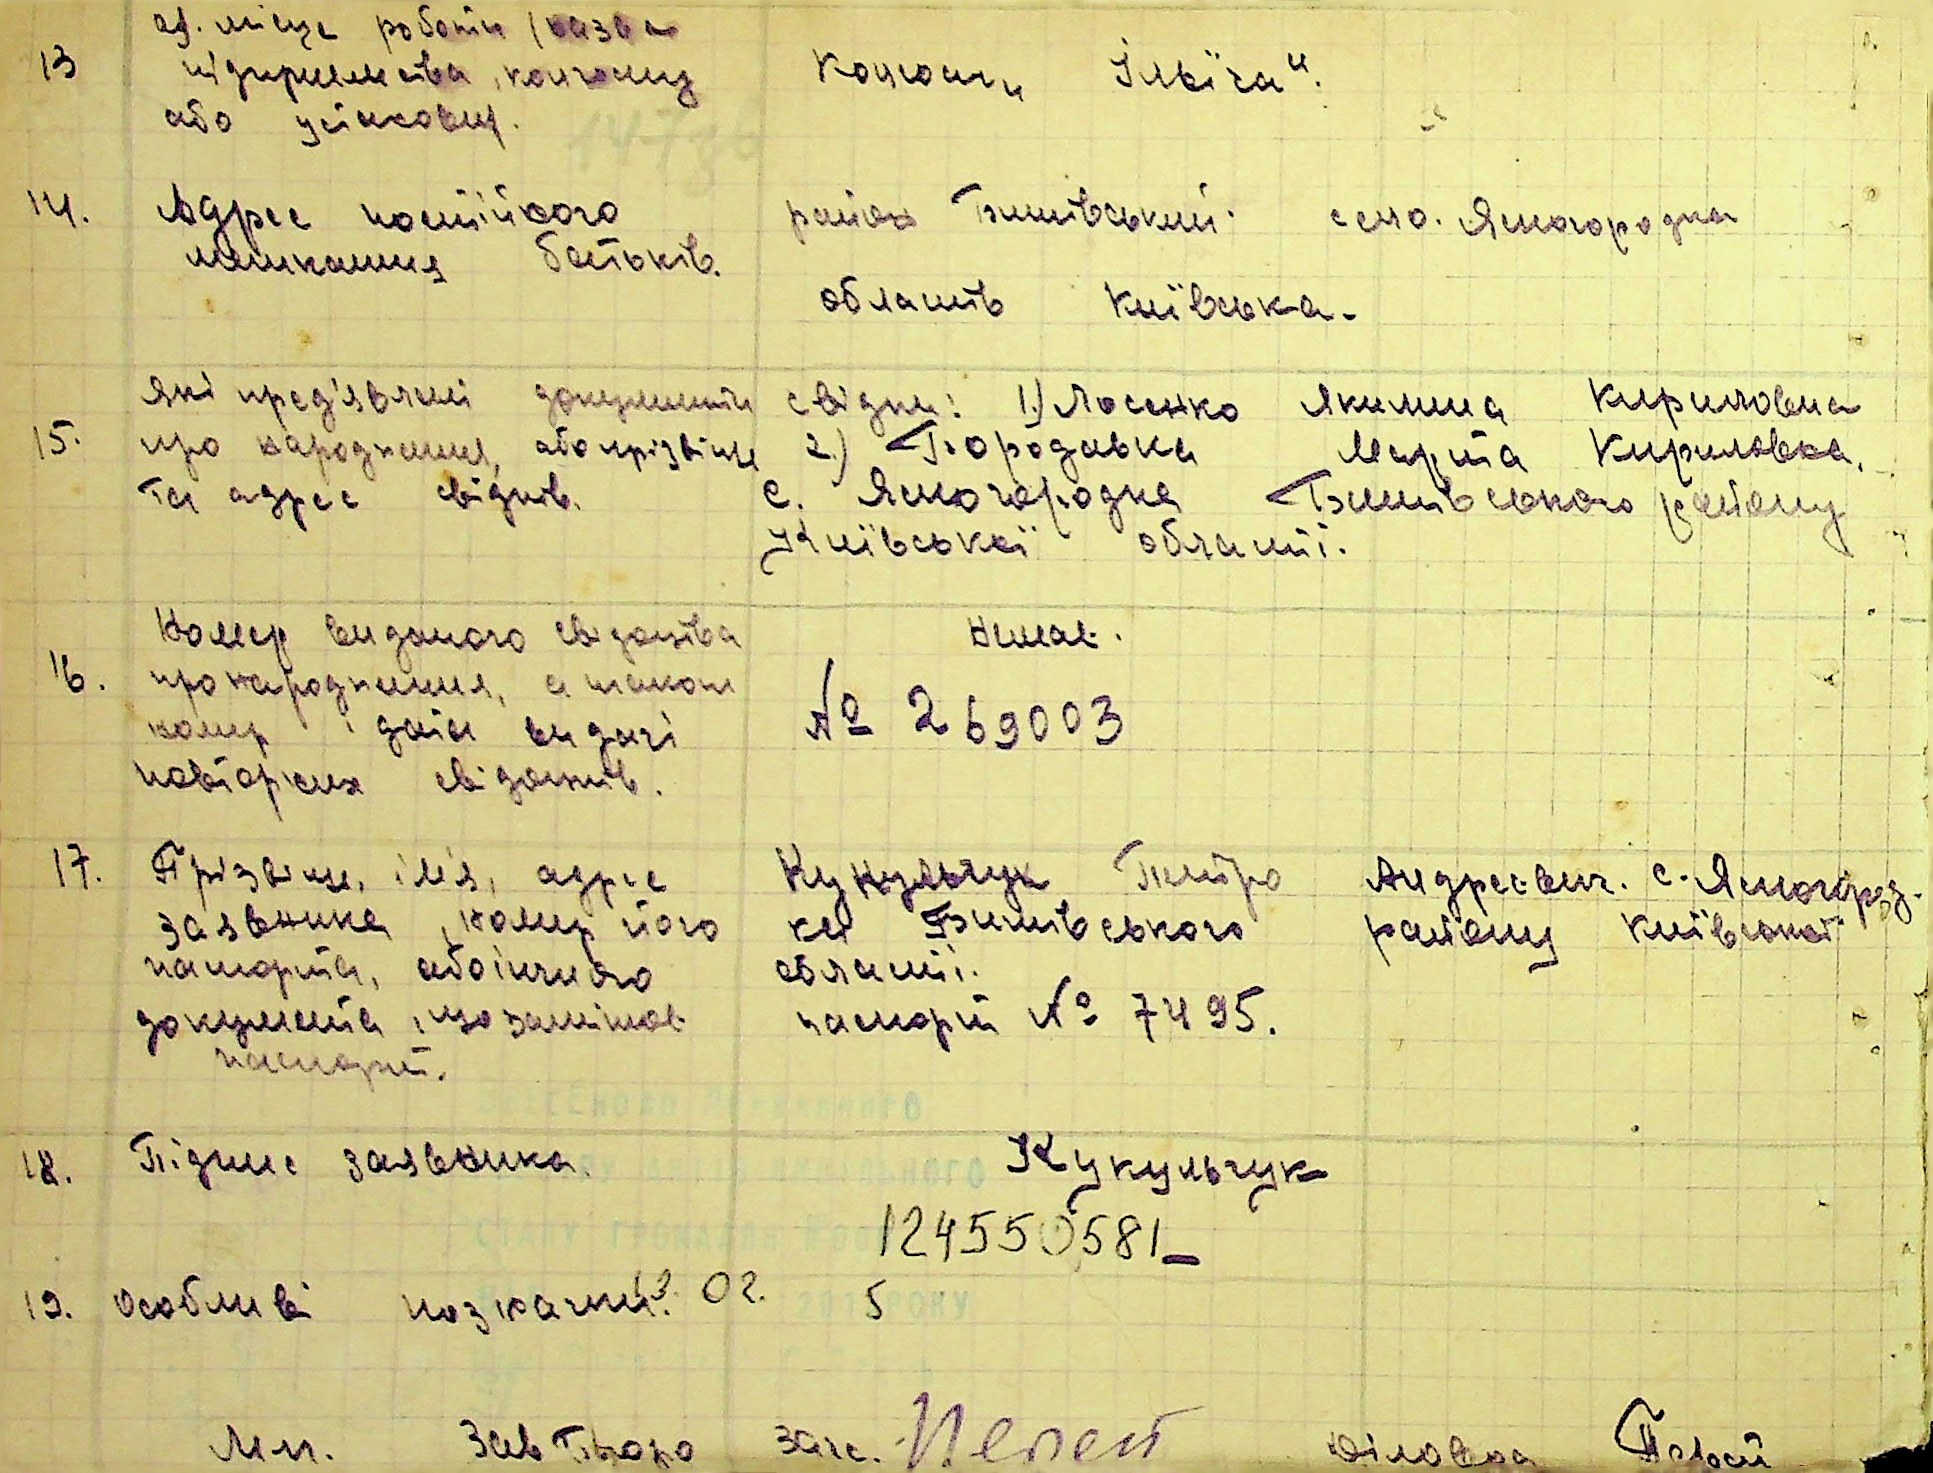 аб. місце роботи (назва
13 підприємства, колгоспу
або установи).
Колгосп „Ілліча“.
14. Адрес постійного
мешкання батьків.
район Бишівський. село. Ясногородка
область Київська.
15. які пред'явлені документи
про народження, або прізвище
та адрес свідків.
свідки: 1.) Лосенко Якилина Кириловна
2.) Бородавка Марта Кириловна,
с. Ясногородка Бишівського району
Київської області.
16. Номер виданого свідоцтва
про народження, а також
номер і дата видачі
повторних свідоцтв.
Немає.
№ 269003
17. Прізвище, ім'я, адрес
заявника, номер його
паспорта, або іншого
документа, що заміняє
паспорт.
Кукульчук Петро Андреевич. с. Ясногород-
ка Бишівського району Київської
області.
паспорт № 7495.
18. Підпис заявника.
Кукульчук
124550581
19. Особливі позначки. 02. 5
СТАНУ ГРОМАДЯН
РОКУ
М.п. Зав Бюро загс. Діловод